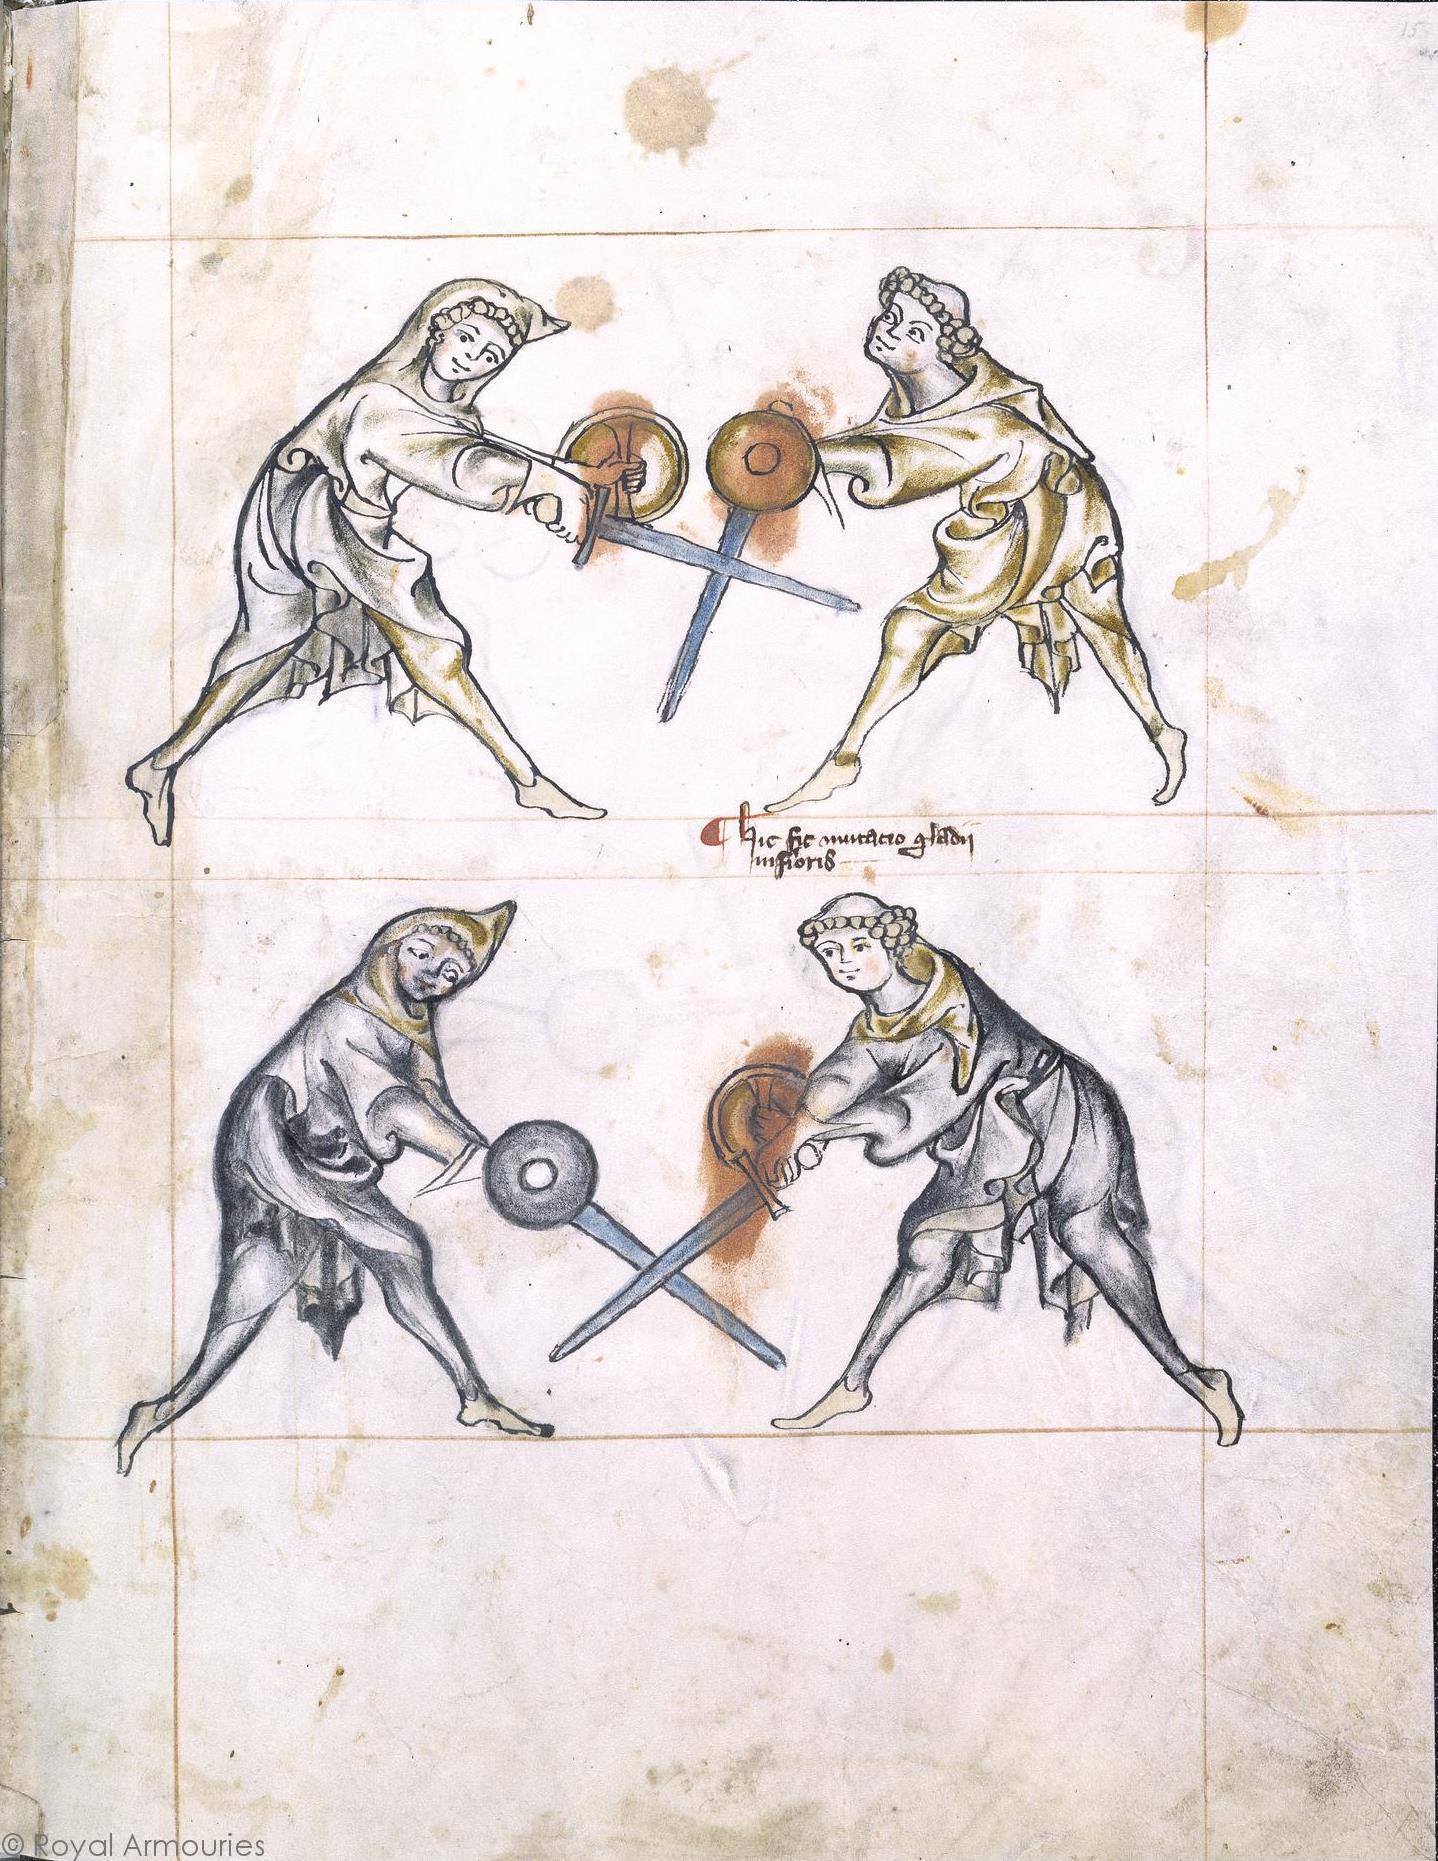 15
¶ hic fit mutacio gladii
inferioris
© Royal Armouries